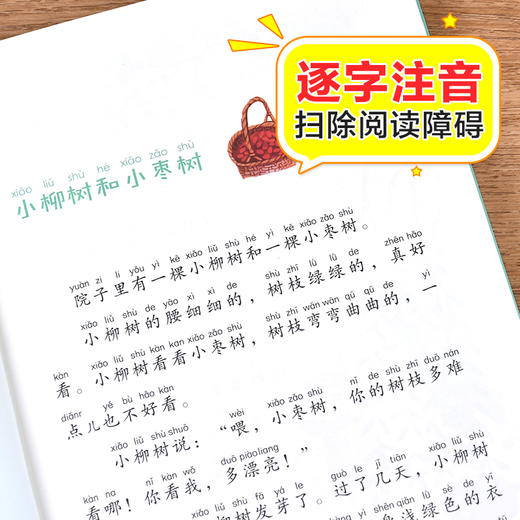 逐字注音
扫除阅读障碍
xiǎo liǔ shù hé xiǎo zǎo shù
小柳树和小枣树
yuàn zi lǐ yǒu yì kē xiǎo liǔ shù hé yì kē xiǎo zǎo shù
院子里有一棵小柳树和一棵小枣树。
xiǎo liǔ shù de yāo xì xì de shù zhī lǜ lǜ de zhēn hǎo
小柳树的腰细细的，树枝绿绿的，真好
kàn xiǎo liǔ shù kàn kan xiǎo zǎo shù shù zhī wān wān qū qū de yì
看。小柳树看看小枣树，树枝弯弯曲曲的，一
diǎnr yě bù hǎo kàn
点儿也不好看。
xiǎo liǔ shù shuō wèi xiǎo zǎo shù nǐ de shù zhī duō nán
小柳树说：“喂，小枣树，你的树枝多难
kàn na nǐ kàn wǒ duō piào liang
看哪！你看我，多漂亮！”
liǔ shù fā yá le guò le jǐ tiān xiǎo liǔ shù
柳树发芽了。过了几天，小柳树
shēn qiǎn lǜ sè de yī
浅绿色的衣